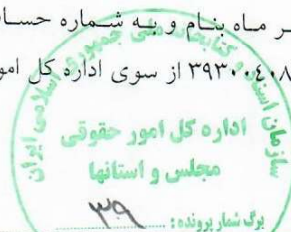 ر ماه بنام و به شماره حساب
۳۹۳۰۰۴۰۸ از سوی اداره کل امو
سازمان اسناد و کتابخانه ملی جمهوری اسلامی ایران
اداره کل امور حقوقی
مجلس و استانها
برگ شمار پرونده: ۳۹